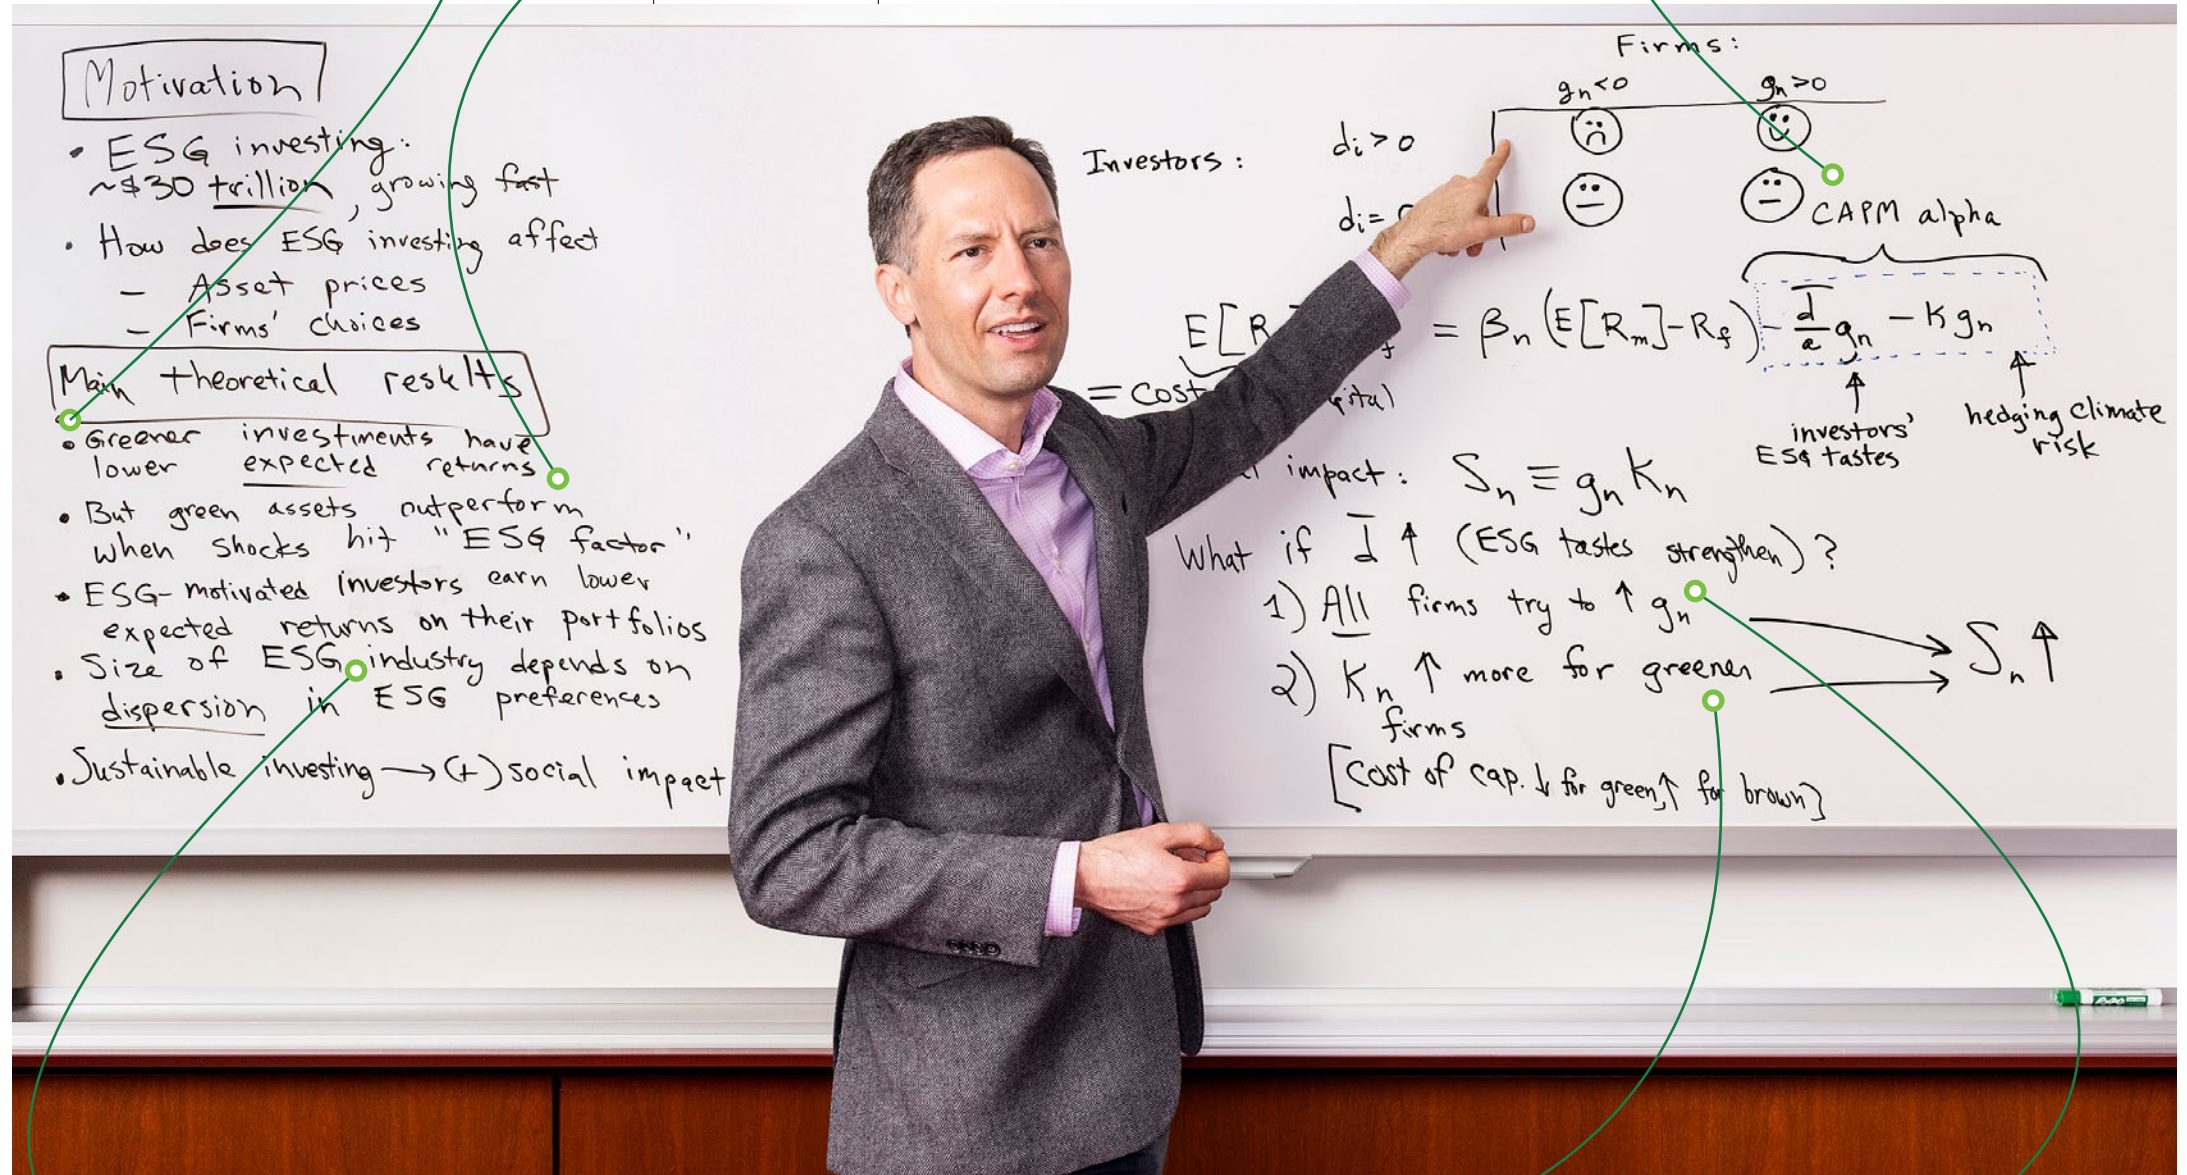 Motivation
• ESG investing:
~$30 trillion, growing fast
• How does ESG investing affect
– Asset prices
– Firms' choices
Main theoretical results
• Greener investments have
lower expected returns
• But green assets outperform
when shocks hit "ESG factor"
• ESG-motivated investors earn lower
expected returns on their portfolios
• Size of ESG industry depends on
dispersion in ESG preferences
• Sustainable investing → (+) social impact
Firms:
gₙ<0 gₙ>0
Investors: dᵢ > 0
dᵢ =
CAPM alpha
E[R = βₙ (E[Rₘ]-R_f) - d̄/a gₙ - K gₙ
= cost
investors'
ESG tastes
hedging climate
risk
impact: Sₙ ≡ gₙ Kₙ
What if d̄ ↑ (ESG tastes strengthen)?
1) All firms try to ↑ gₙ
2) Kₙ ↑ more for greener
firms
Sₙ ↑
[cost of cap. ↓ for green, ↑ for brown]